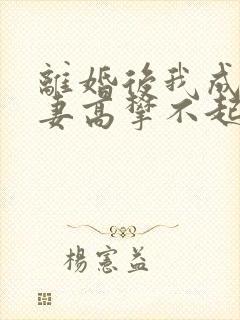 離婚後我成
妻高攀不起
楊憲益